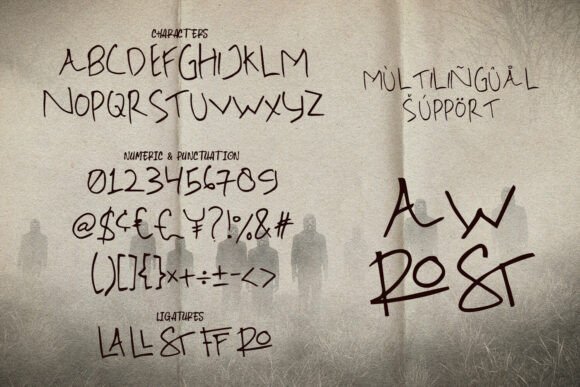 CHARACTERS
ABCDEFGHIJKLM
NOPQRSTUVWXYZ
NUMERIC & PUNCTUATION
0123456789
@$¢€£¥?!%&#
()[]{}×+÷±-<>
LIGATURES
LA LL ST FF RO
MÙLTILIÑGÛÅL
ŠÚPPÖRT
A W
RO ST